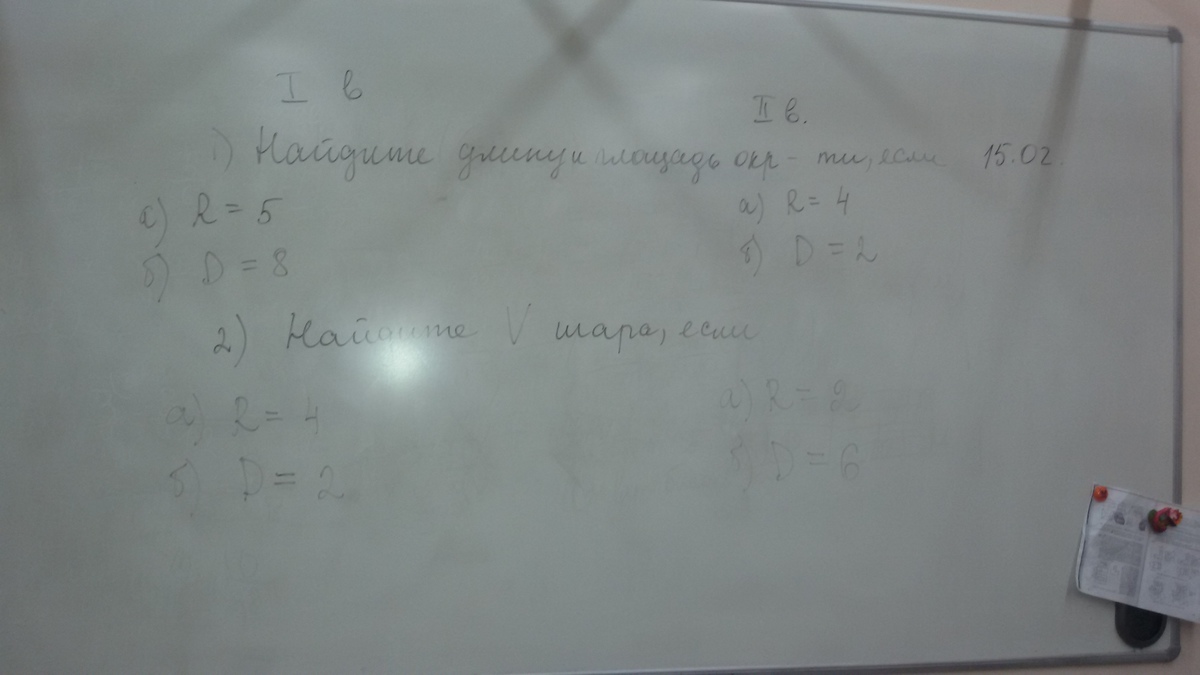 I в
II в.
1) Найдите длину и площадь окр-ти, если 15.02.
а) R = 5
а) R = 4
б) D = 8
б) D = 2
2) Найдите V шара, если
а) R = 4
а) R = 2
б) D = 2
б) D = 6